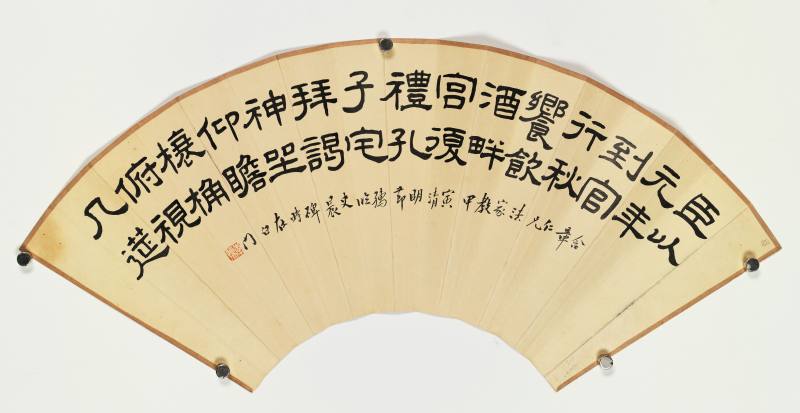 臣以
元年
到官
行秋
饗飲
酒畔
宮復
禮孔
子宅
拜謁
神坐
仰瞻
榱桷
俯視
几筵
含章仁兄法家教
甲寅清明節臨史晨碑時在白門